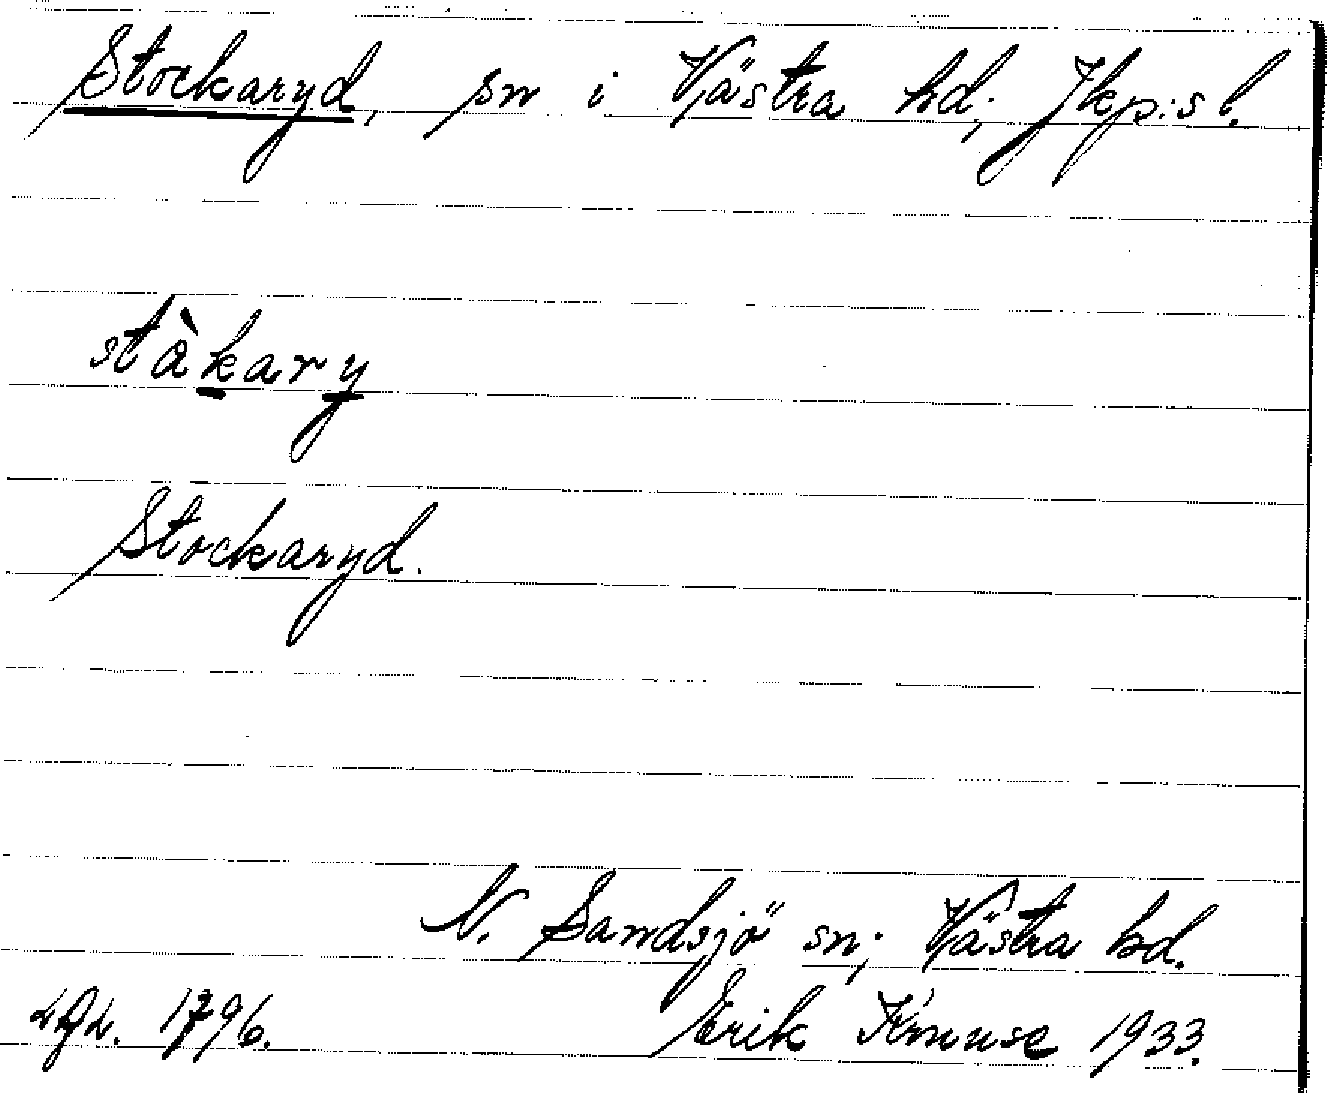 Stockaryd, sn i Västra hd; Jkp:s l.
stàkary
Stockaryd.
N. Sandsjö sn; Västra hd.
1796. Erik 1933.